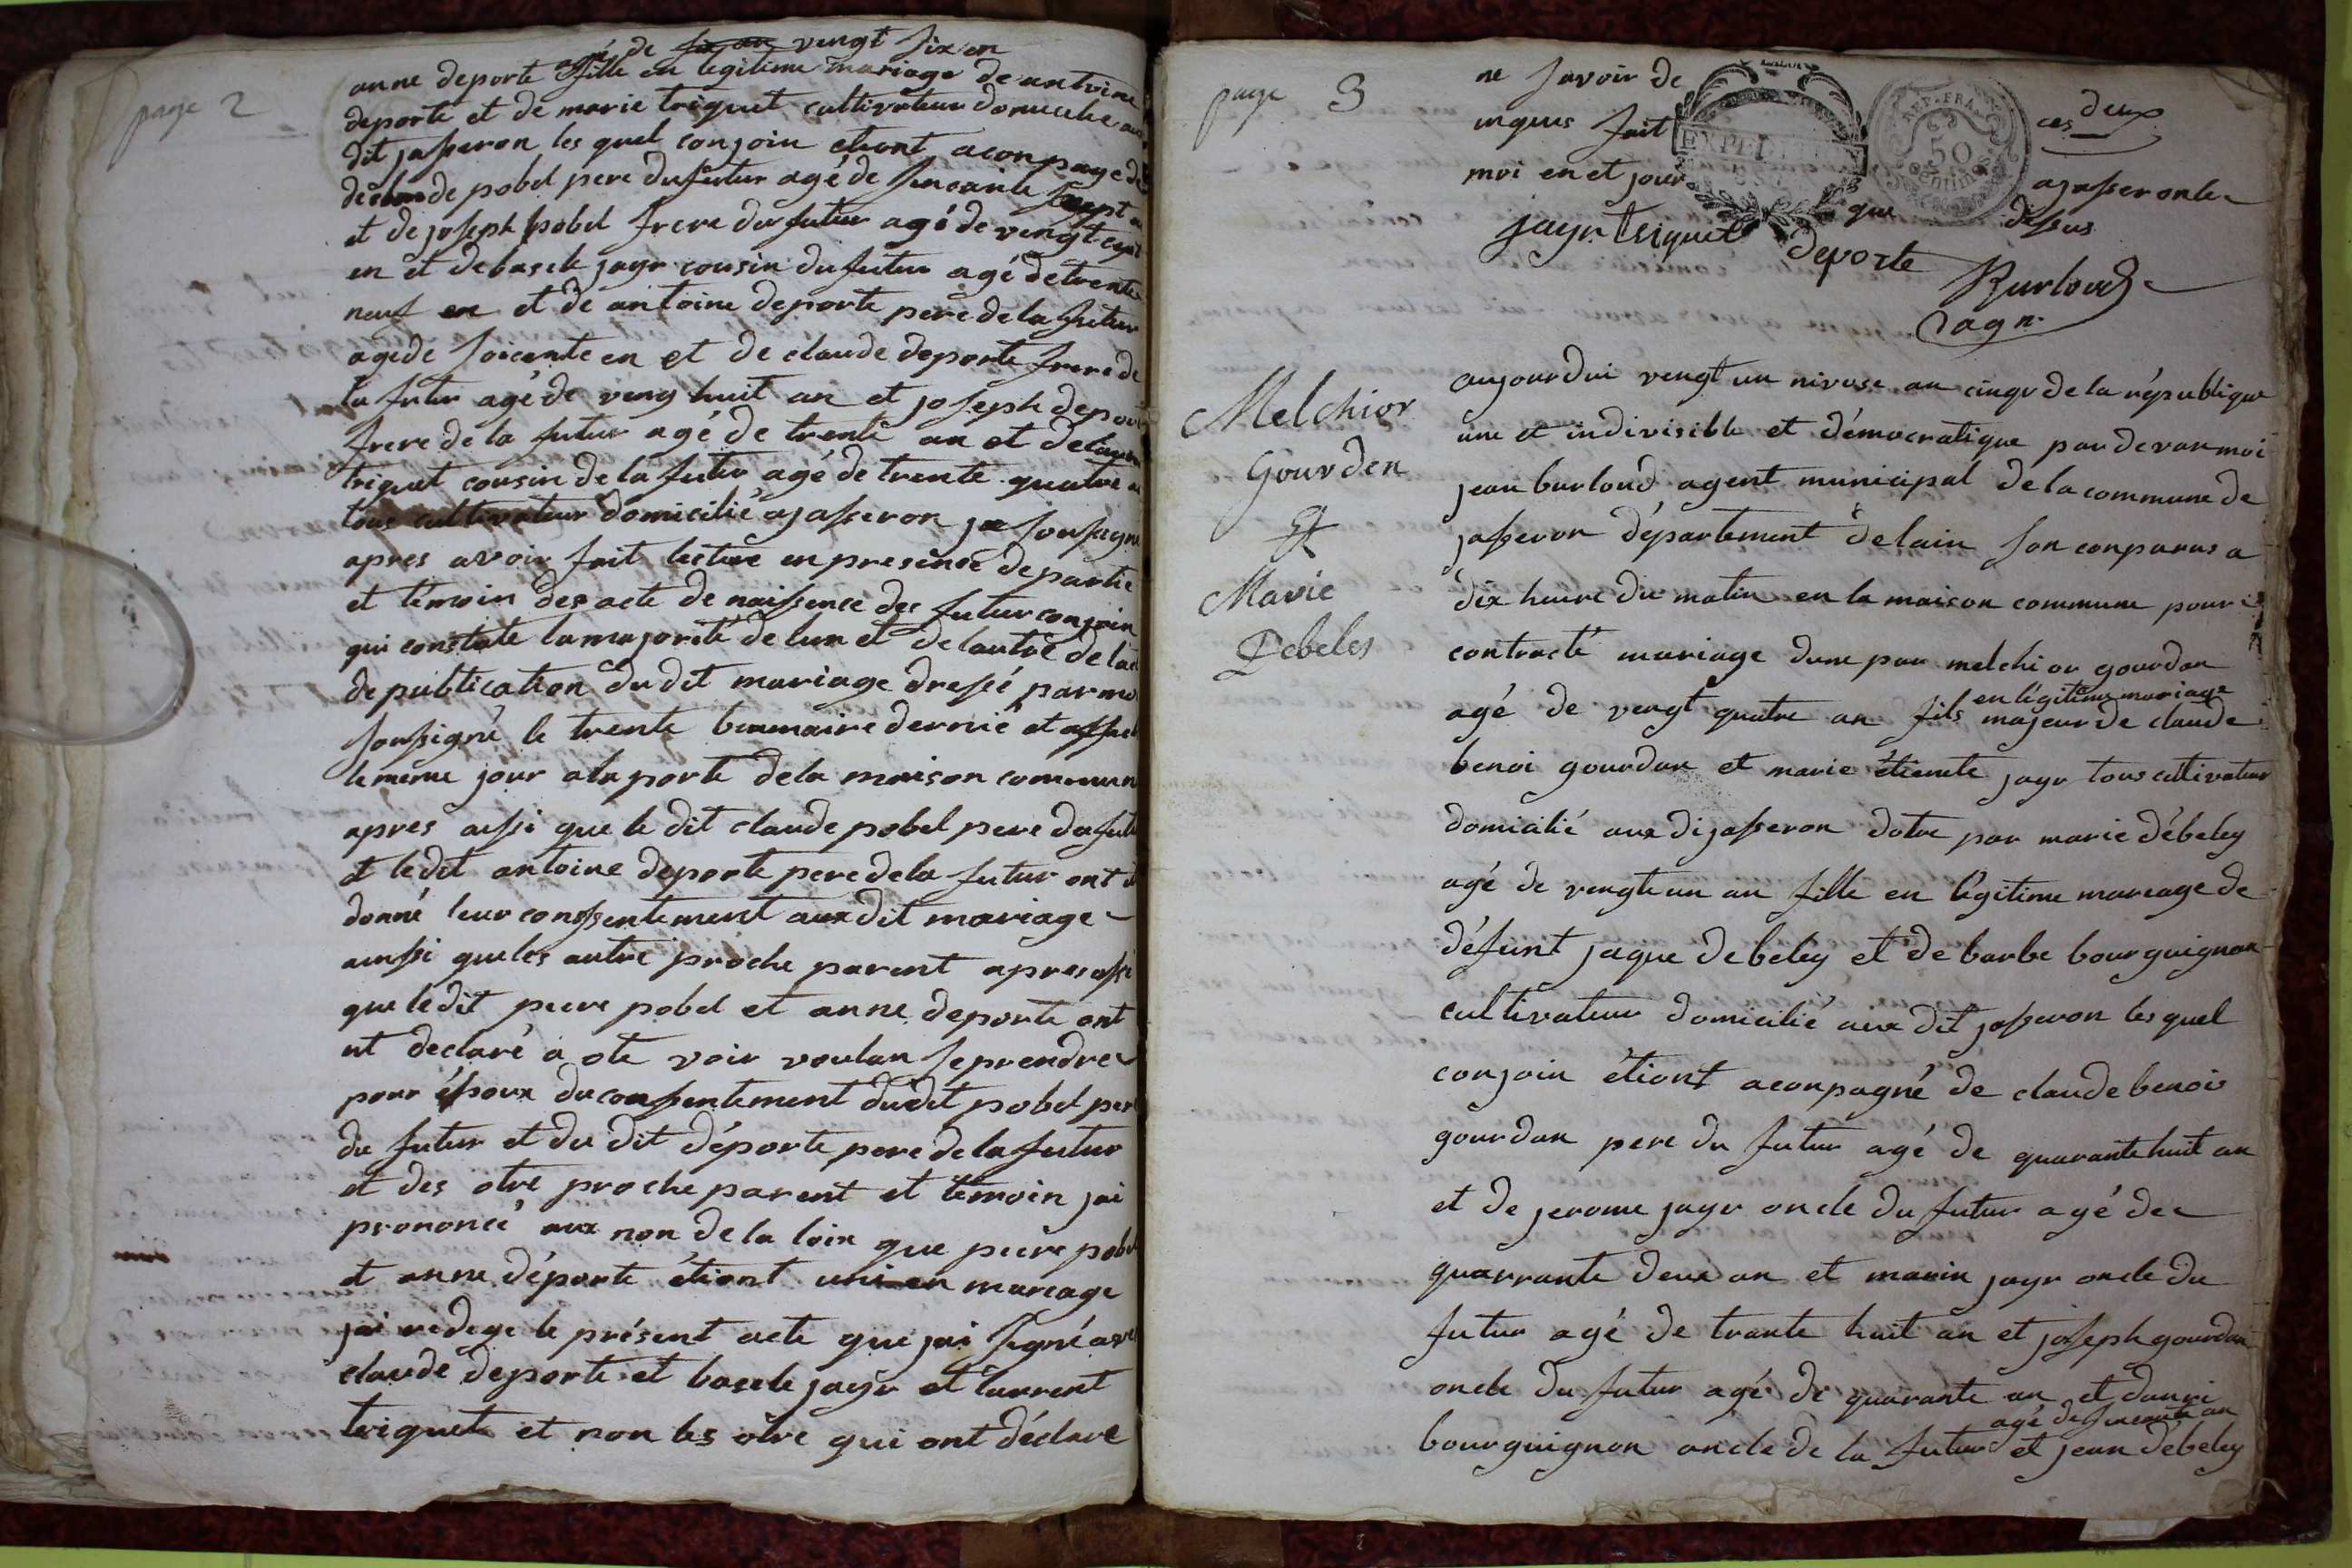 page 2
agé de six an vengt six en
anne deporte fille en legitime mariage de antoine
deporte et de marie triquet cultivateur domicilie au
dit jasseron les quel conjoin etiont aconpagé de
de claude pobel pere du futur agé de sincante sept
et de joseph pobel frere du futur agé de vengt cept
en et de basile jayr cousin du futur agé de trente
neuf en et de antoine deporte pere de la futur
agé de soicente en et de claude deporte frere de
la futur agé de veng huit an et joseph deporte
frere de la futur agé de trente an et de laurent
triquet cousin de la futur agé de trente quatre an
tous cultivateur domicilié a jasseron je sousigné
apres avoir fait lecture en presence de partie
et témoin des acte de naissence des futur conjoin
qui constate la majorité de lun et de lautre de lact
de publication du dit mariage dressé par moi
sousigné le trente brumaire dernié et affiché
le méme jour a la porte de la maison commune
apres aussi que le dit claude pobel pere du futur
et ledit antoine deporte pere de la futur ont
donné leur conssentement aux dit mariage
ainssi que les autre proche parent apres assi
que le dit piere pobel et anne deporte ont
nt declaré a ote voir voulan se prendre
pour époux du consentement dudit pobel pere
du futur et du dit déporte pere de la futur
et des otre proche parent et témoin jai
prononcé aux non de la loix que piere pobel
et anne déporte étiont uni en mareage
jai redege le présent acte que jai signé avec
claude deporte et basile jayr et laurent
triquet et non les otre qui ont déclaré
page 3
ne savoir de ces deux
inques fait a jasseron le
moi en et jour que dessus
jayr triquet deporte
Burloud
agn.
Melchior
Gourden
Et
Marie
Debeles
aujourdui vengt un nivose an cinqv de la république
une et indivisible et démocratique par devan moi
jean burloud agent municipal de la commune de
jasseron département de lain son conparus a
dix heure du matin en la maison commune pour
contracté mariage dune par melchior gourdan
agé de vengt quatre an fils en légitime mariage majeur de claude
benoi gourdan et marie étienete jayr tous cultivateur
domicilié aux di jasseron dotre par marie débeley
agé de vengt un an fille en légitime mareage de
défunt jaque debeley et de barbe bourguignon
cultivateur domicilié aux dit jasseron les quel
conjoin étiont aconpagné de claude benois
gourdan pere du futur agé de quarante huit an
et de jerome jayr oncle du futur agé de
quarrante deux an et marin jayr oncle du
futur agé de trante huit an et joseph gourdan
oncle du futur agé de quarante an et danri
bourguignon oncle de la futur agé de sincante an et jean débeley
REP. FRA.
50
centimes